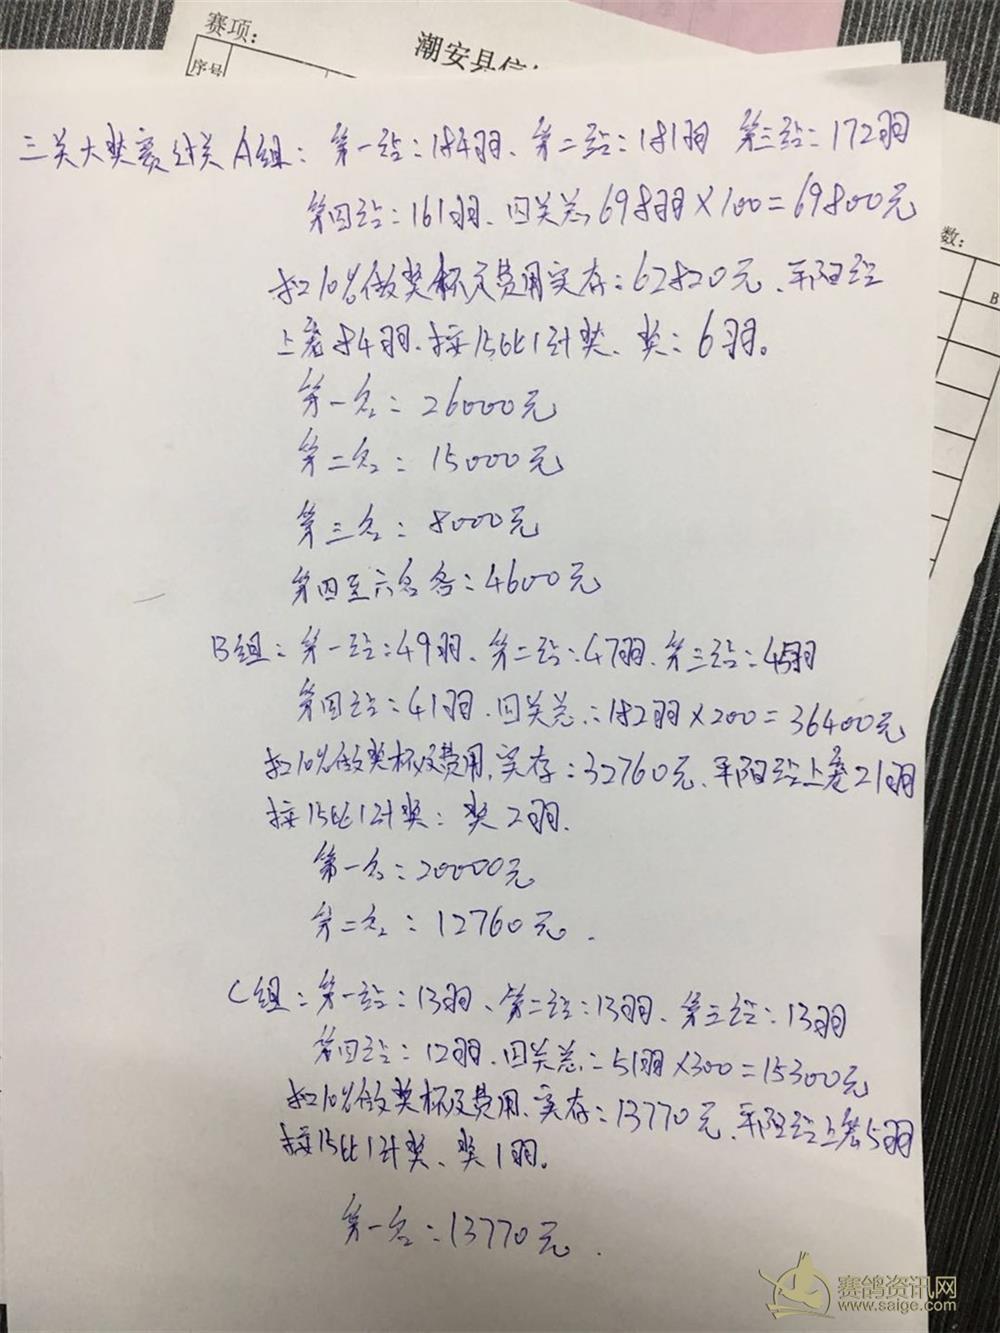 赛项：
潮安县信
序号
数：
三关大奖赛过关A组：第一站：184羽、第二站：181羽 第三站：172羽
第四站：161羽、四关总：698羽×100=69800元
扣10%做奖杯及费用实存：62820元、平阳站
上赛84羽、按15比1计奖、奖：6羽。
第一名：26000元
第二名：15000元
第三名：8000元
第四至六名各：4600元
B组：第一站：49羽、第二站：47羽、第三站：45羽
第四站：41羽、四关总：182羽×200=36400元
扣10%做奖杯及费用、实存：32760元、平阳站上赛21羽
按15比1计奖：奖2羽.
第一名：20000元
第二名：12760元.
C组：第一站：13羽、第二站：13羽、第三站：13羽
第四站：12羽、四关总：51羽×300=15300元
扣10%做奖杯及费用、实存：13770元、平阳站上赛5羽
按15比1计奖、奖1羽。
第一名：13770元.
赛鸽资讯网
www.saige.com